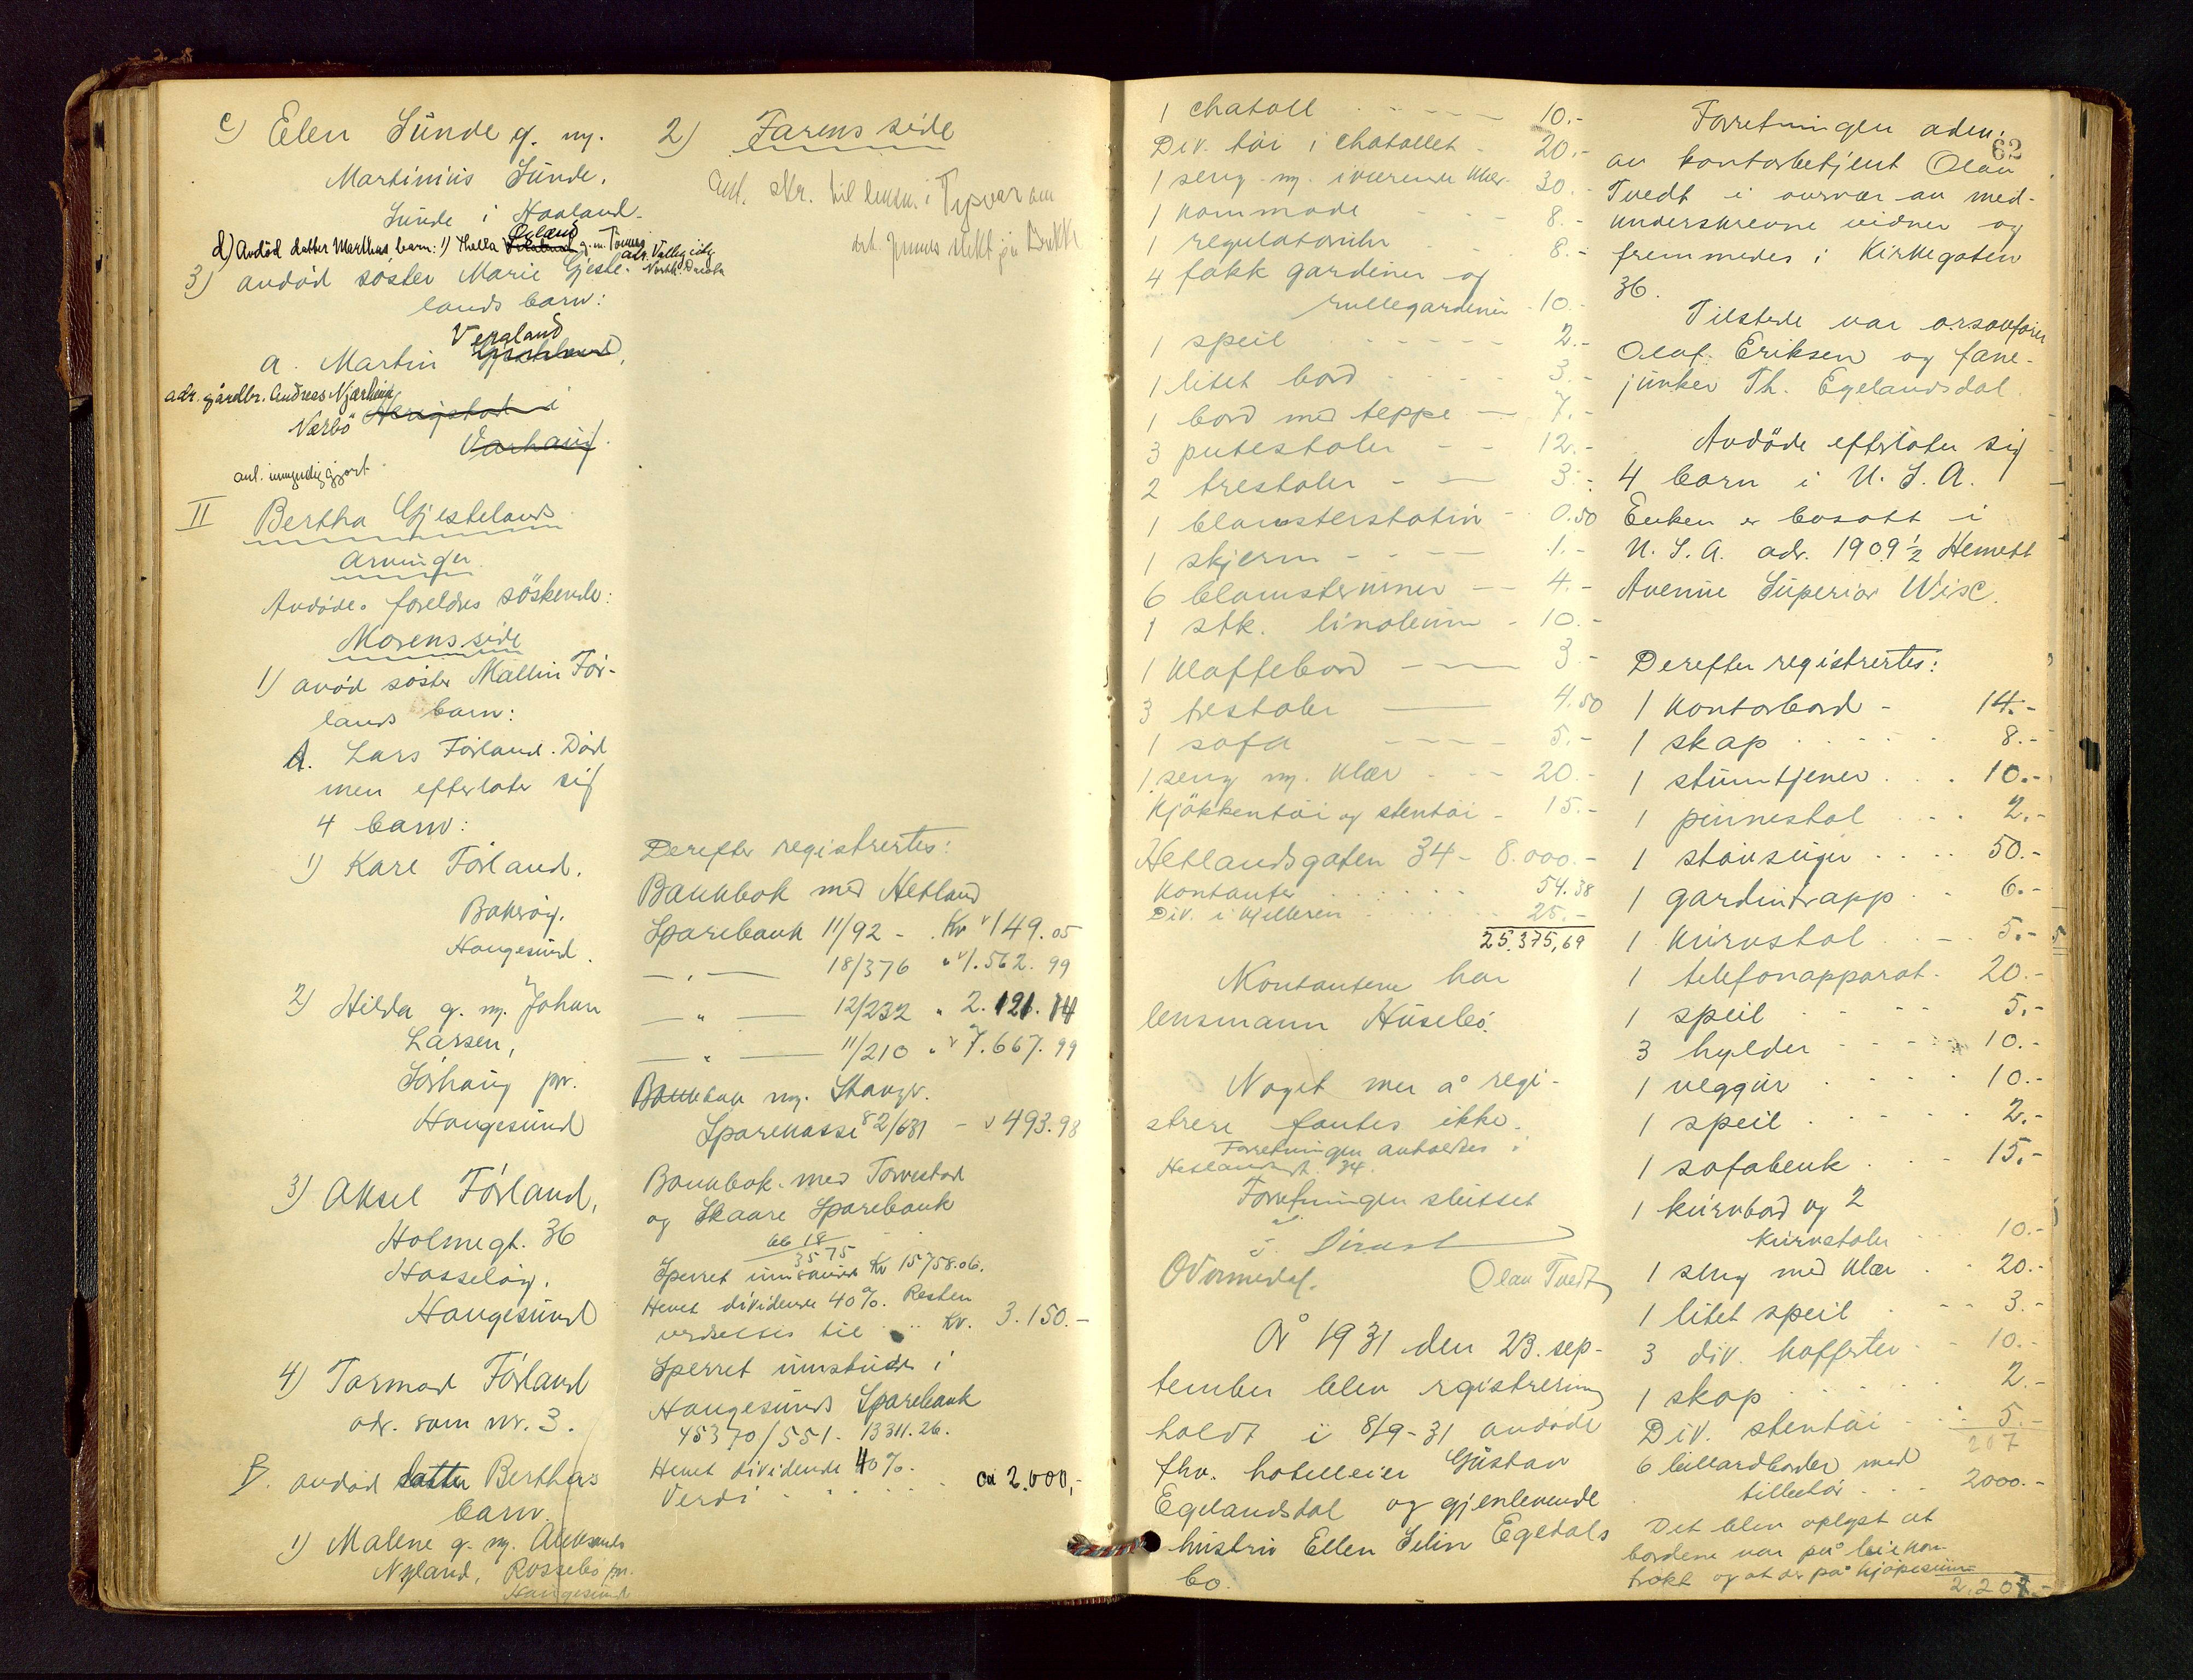 c) Elen Sunde g. m.
Martinius Sunde.
Sunde i Haaland.
d) Avdød datter Marthas barn: 1) Thella g. m.
adr. Valley city
North Dacota
3) avdød søster Marie Gjeste-
lands barn:
Vegaland
a. Martin Gjesteland,
adr. gårdbr. Andreas Njærheim
Nærbø i
Varhaug.
ant. umyndiggjort
II Bertha Gjestelands
arvinger
Avdødes foreldres søskende:
Morens side
1) avød søster Mallin Før-
lands barn:
A. Lars Førland. Død
men efterlater sig
4 barn:
1) Kare Førland.
Haugesund.
2) Hilda g. m. Johan
Larsen,
Sørhaug pr.
Haugesund
3) Aksel Førland,
Holmegt. 36
Hasseløy.
Haugesund
4) Tormod Førland
adr. som nr. 3.
B. avdød datter Berthas
barn.
1) Malene g. m. Aleksander
Nyland, Rossebø pr.
Haugesund
2) Farens side
Ant. skr. til lensm. i Tysvær om
Derefter registrertes:
Bankbok med Hetland
Sparebank 11/92 - Kr 149.05
— " — 18/376 " 1.562.99
— " — 12/232 " 2.121.14
— " — 11/210 " 7.667.99
Bankbok m. Stavgr.
Sparekasse 82/631 - 493.98
Bankbok med Torvestad
og Skaare Sparebank
66 18
3575
Sperret innskudd Kr 15758.06.
Hevet dividende 40%. Resten
verdsettes til Kr. 3.150.-
Sperret innskudd i
Haugesunds Sparebank
45370/551. 13311.26.
Hevet dividende 40%.
Verdi ca 2.000,-
1 chatoll 10.-
Div. tøi i chatollet 20.-
1 seng m. iværende klær 30.-
1 kommode 8.-
1 regulatorur 8.-
4 fakk gardiner og
rullegardiner 10.-
1 speil 2.-
1 litet bord 3.-
1 bord med teppe 7.-
3 putestoler 12.-
2 trestoler 3.-
1 blomsterstativ 0.50
1 skjerm 1.-
6 blomsterurner 4.-
1 stk. linoleum 10.-
1 klaffebord 3.-
3 trestoler 4.50
1 sofa 5.-
1 seng m. klær 20.-
Kjøkkentøi og stentøi 15.-
Hetlandsgaten 34 - 8.000.-
Kontanter 54.38
Div. i kjelleren 25.-
25.375,69
Kontantene har
lensmann Husebø.
Noget mer å regi-
strere fantes ikke.
Forretningen avholdtes i
Hetlandsgt. 34.
Forretningen sluttet
Olav Tvedt
År 1931 den 23. sep-
tember blev rgistrering
holdt i 8/9-31 avdøde
fhv. hotelleier Gustav
Egelandsdal og gjenlevende
hustru Ellen Selin Egedals
bo.
62
Forretningen adm.
av kontorbetjent Olav
Tvedt i overvær av med-
underskrevne vidner og
fremmedes i Kirkegaten
36.
Tilstede var orsakfører
Olaf Eriksen og fane-
junker Th. Egelandsdal.
Avdøde efterlater sig
4 barn i U.S.A.
Enken er bosatt i
U.S.A. adr. 1909½ Hewett
Avenue Superior Wisc.
Derefter registrertes:
1 kontorbord - 14.-
1 skap 8.-
1 stumtjener 10.-
1 pinnestol 2.-
1 støvsuger 50.-
1 gardintrapp 6.-
1 kurvstol 5.-
1 telefonapparat 20.-
1 speil 5.-
3 hylder 10.-
1 veggur 10.-
1 speil 2.-
1 sofabenk 15.-
1 kurvbord og 2
kurvstoler 10.-
1 seng med klær 20.-
1 litet speil 3.-
3 div. kofferter 10.-
1 skap 2.-
Div. stentøi 5.-
207
6 billardborder med
tilbehør 2000.-
Det blev oplyst at
bordene var på leiekon-
trakt og at de på kjøpesum
2.207.-